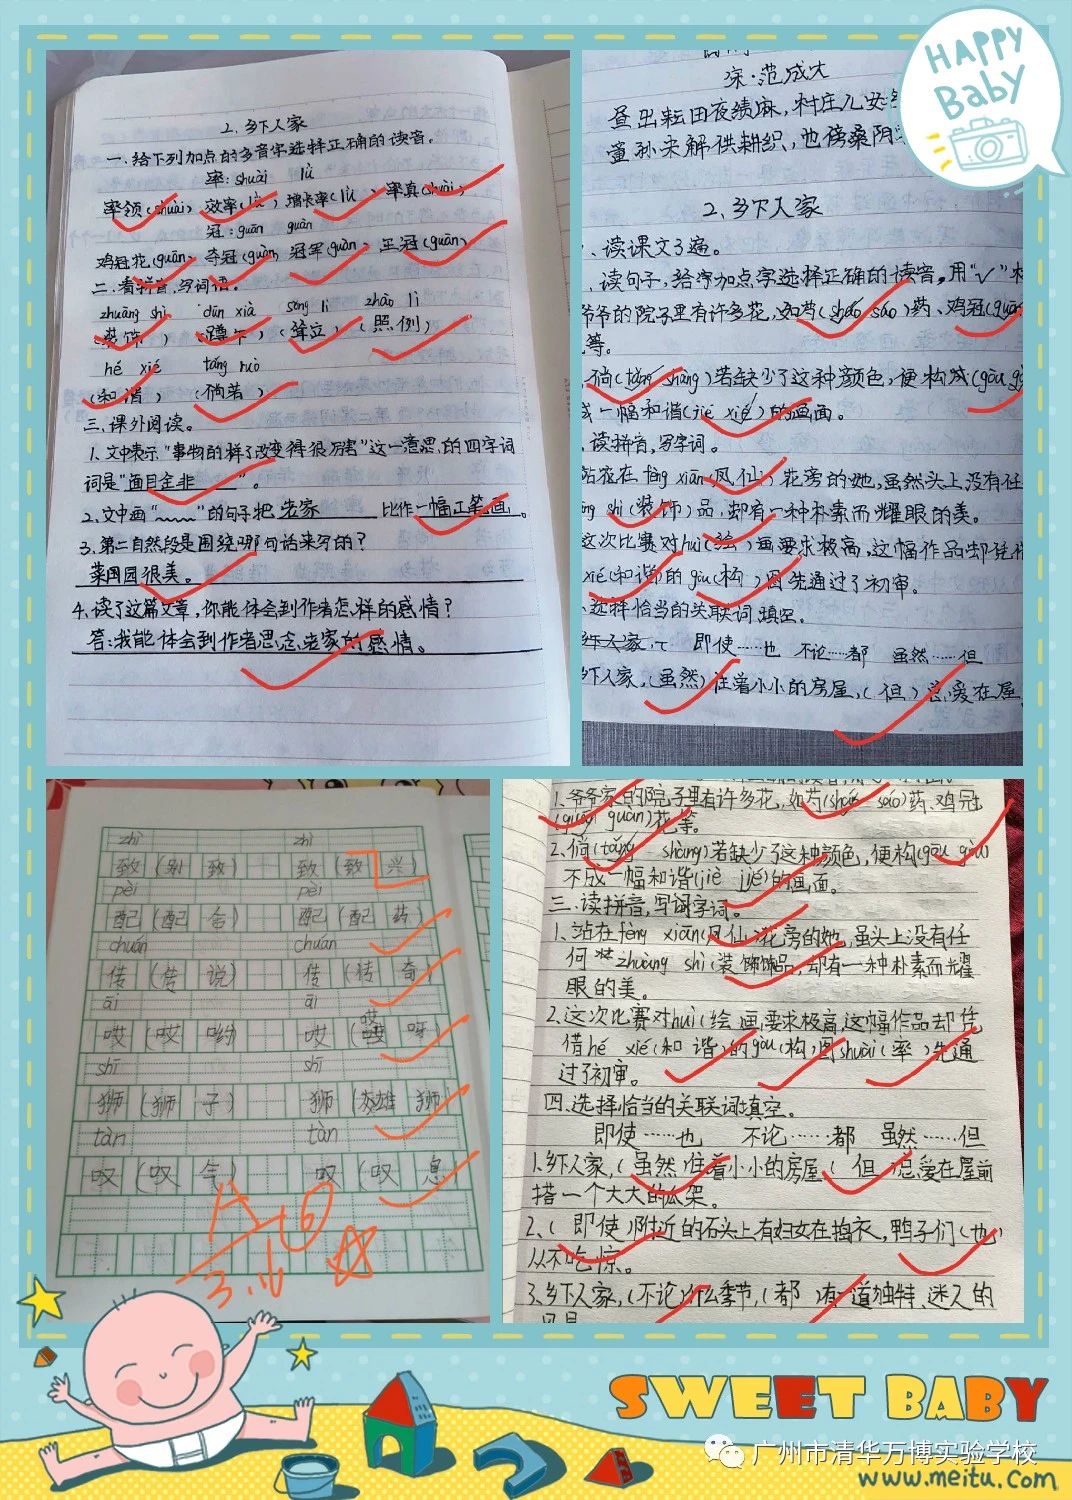 HAPPY
Baby
2.乡下人家
一、给下列加点的多音字选择正确的读音。
率:shuài lǜ
率领(shuài) 效率(lǜ) 增长率(lǜ) 率真(shuài)
冠:guān guàn
鸡冠花(guān) 夺冠(guàn) 冠军(guàn) 王冠(guān)
二、看拼音,写词语。
zhuāng shì dūn xià sǒng lì zhào lì
(装饰) (蹲下) (耸立) (照例)
hé xié tǎng ruò
(和谐) (倘若)
三、课外阅读。
1.文中表示"事物的样子改变得很厉害"这一意思的四字词
词是"面目全非"。
2.文中画"﹏﹏"的句子把 老家 比作 一幅工笔画。
3.第二自然段是围绕哪句话来写的?
菜园园很美。
4.读了这篇文章,你能体会到作者怎样的感情?
答:我能体会到作者思念老家的感情。
宋·范成大
昼出耘田夜绩麻,村庄儿女
童孙未解供耕织,也傍桑阴
2.乡下人家
、读课文3遍。
、读句子,给加点字选择正确的读音,用"√"
爷爷的院子里有许多花,如芍(sháo sáo)药、鸡冠(guān
等。
倘(tǎng shàng)若缺少了这种颜色,便构成(gòu
成一幅和谐(jié xié)的画面。
、读拼音,写字词。
站在fèng xiān(凤仙)花旁的她,虽然头上没有任
shì(装饰)品,却有一种朴素而耀眼的美。
这次比赛对huì(绘)画要求极高,这幅作品却凭借
xié(和谐)的gòu(构)图先通过了初审。
、选择恰当的关联词填空。
即使……也 不论……都 虽然……但
乡下人家,(虽然)住着小小的房屋,(但)总爱在屋
zhì zhì
致(别致) 致(致兴)
pèi pèi
配(配合) 配(配药)
chuán chuán
传(传说) 传(传奇)
āi āi
哎(哎哟) 哎(哎呀)
shī shī
狮(狮子) 狮(雄狮)
tàn tàn
叹(叹气) 叹(叹息)
3.16
1.爷爷家的院子里有许多花,如芍(sháo sáo)药、鸡冠
(guān guàn)花等。
2.倘(tǎng shàng)若缺少了这种颜色,便构(gòu gòu)
不成一幅和谐(jiè jié)的画面。
三、读拼音,写词字词。
1.站在fèng xiān(凤仙)花旁的她,虽头上没有任
何zhuāng shì(装饰)品,却有一种朴素而耀
眼的美。
2.这次比赛对huì(绘)画要求极高,这幅作品却凭
借hé xié(和谐)的gòu(构)图shuài(率)先通
过了初审。
四、选择恰当的关联词填空。
即使……也 不论……都 虽然……但
1.乡下人家,(虽然)住着小小的房屋(但)总爱在屋前
搭一个大大的瓜架。
2.(即使)附近的石头上有妇女在捣衣,鸭子们(也)
从不吃惊。
3.乡下人家,(不论)什么季节,(都)有一道独特、迷人的
SWEET BABY
广州市清华万博实验学校
www.meitu.com